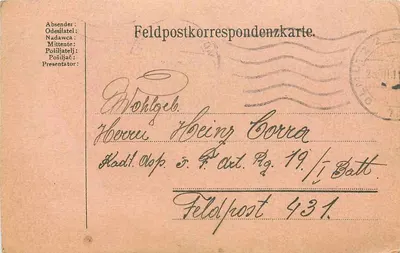 Absender:
Odesílatel:
Nadawca:
Mittente:
Pošiljatelj:
Pošiljač:
Presentator:
Feldpostkorrespondenzkarte.
Wohlgeb.
Herrn Heinz Corra
Kad. Asp. 3. F. Art. Rg. 19/I Batt.
Feldpost 431.